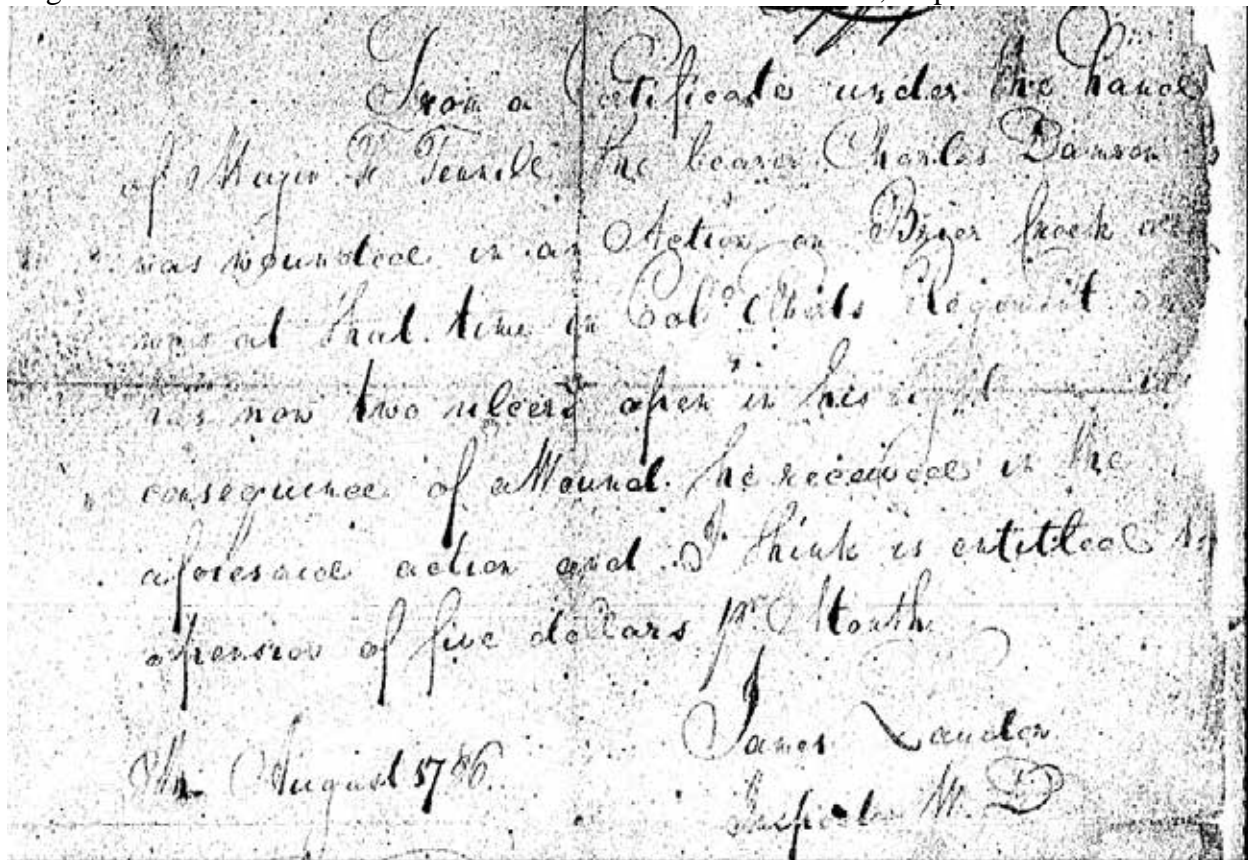 From a Certificate under the hand
of Major F. the bearer Charles Damron
was wounded in an Action on Brier Creek
was at that time in Col.º Regiment
has now two ulcers open in his right
consequence of a Wound he received in the
aforesaid action and I think is entitled to
a pension of five dollars pr. Month
James
August 1786 Inspector M. D